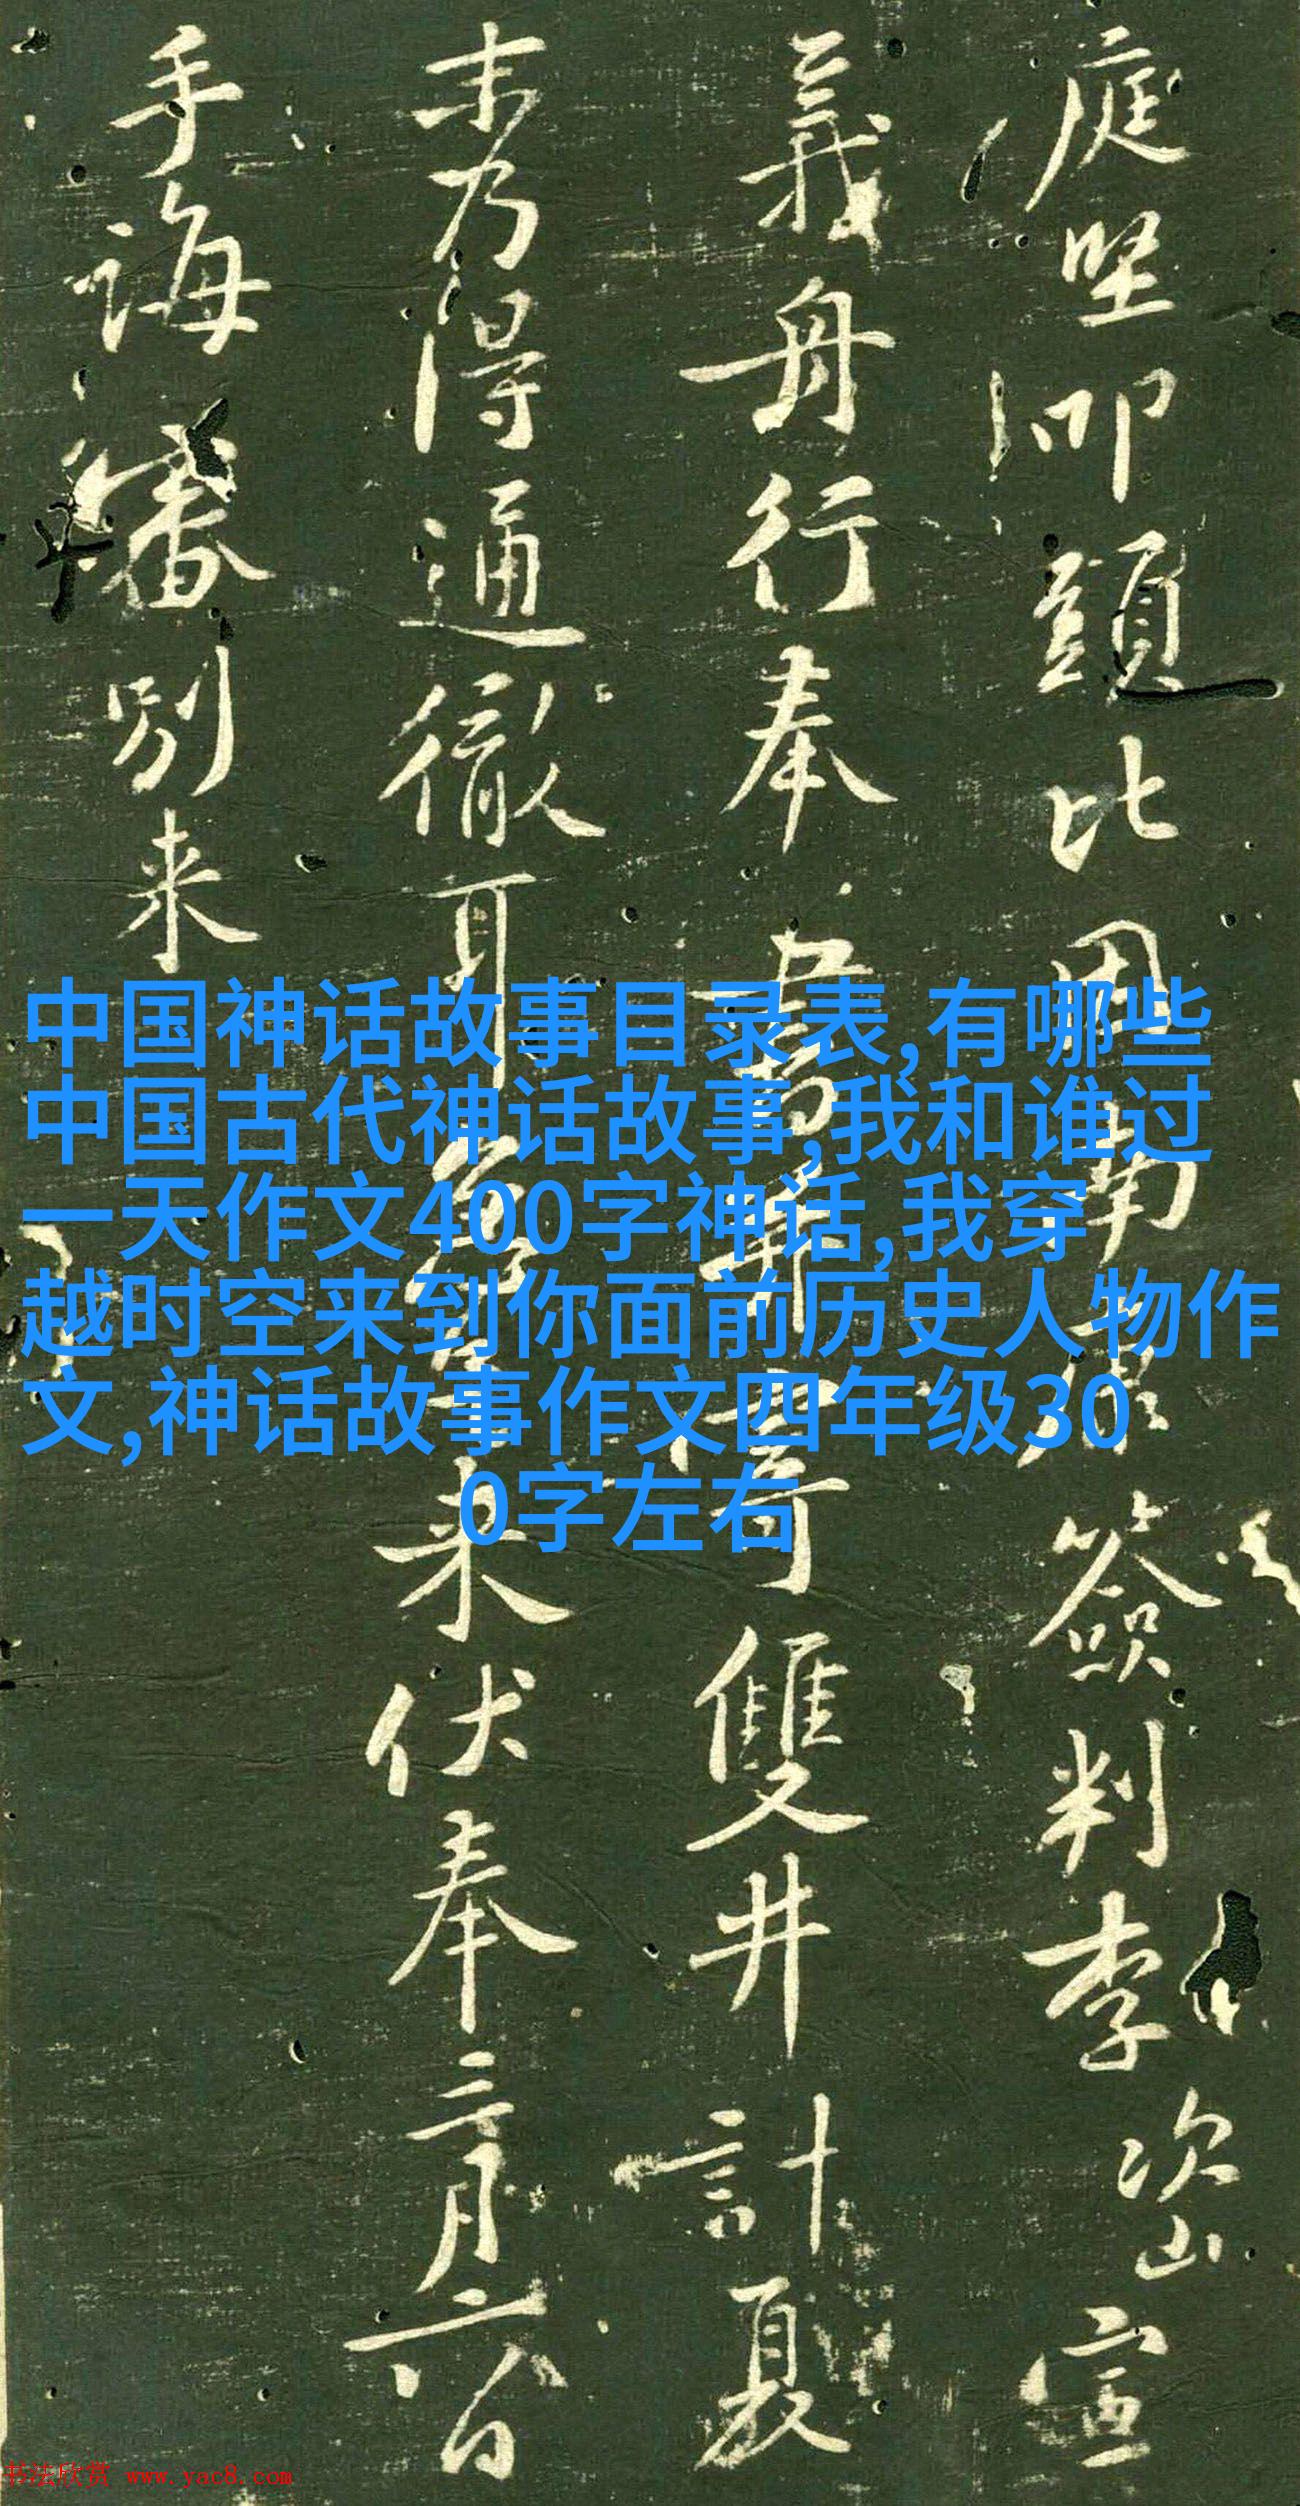 庭堅叩頭比因南康簽判李次山宣
義舟行奉書并寄雙井計夏
末乃得通徹耳急足來伏奉三月六日
手誨審別來
中国神话故事目录表,有哪些
中国古代神话故事,我和谁过
一天作文400字神话,我穿
越时空来到你面前历史人物作
文,神话故事作文四年级30
0字左右
书法欣赏 www.yac8.com